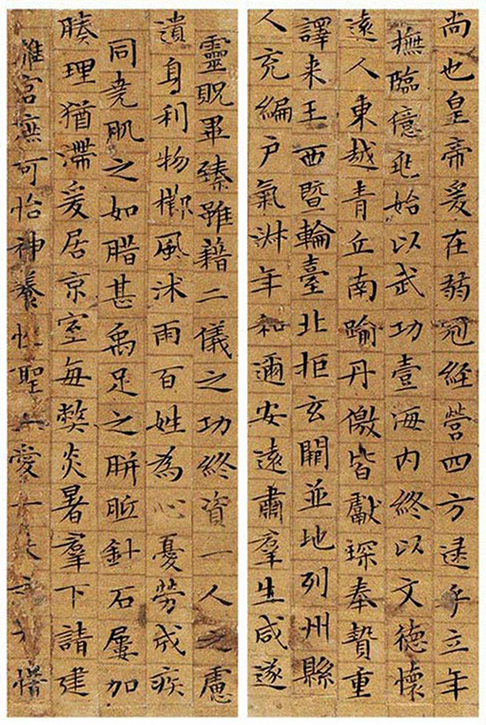 尚也皇帝爰在弱冠經營四方逮乎立年
撫臨億兆始以武功壹海內終以文德懷
遠人東越青丘南踰丹儌皆獻琛奉贄重
譯來王西暨輪臺北拒玄闕並地列州縣
人充編戶氣淋年和邇安遠肅羣生咸遂
靈貺畢臻雖藉二儀之功終資一人之慮
遺身利物櫛風沐雨百姓為心憂勞成疾
同堯肌之如腊甚禹足之胼胝針石屢加
腠理猶滯爰居京室每弊炎暑羣下請建
離宮庶可怡神養性聖上愛一夫之力惜